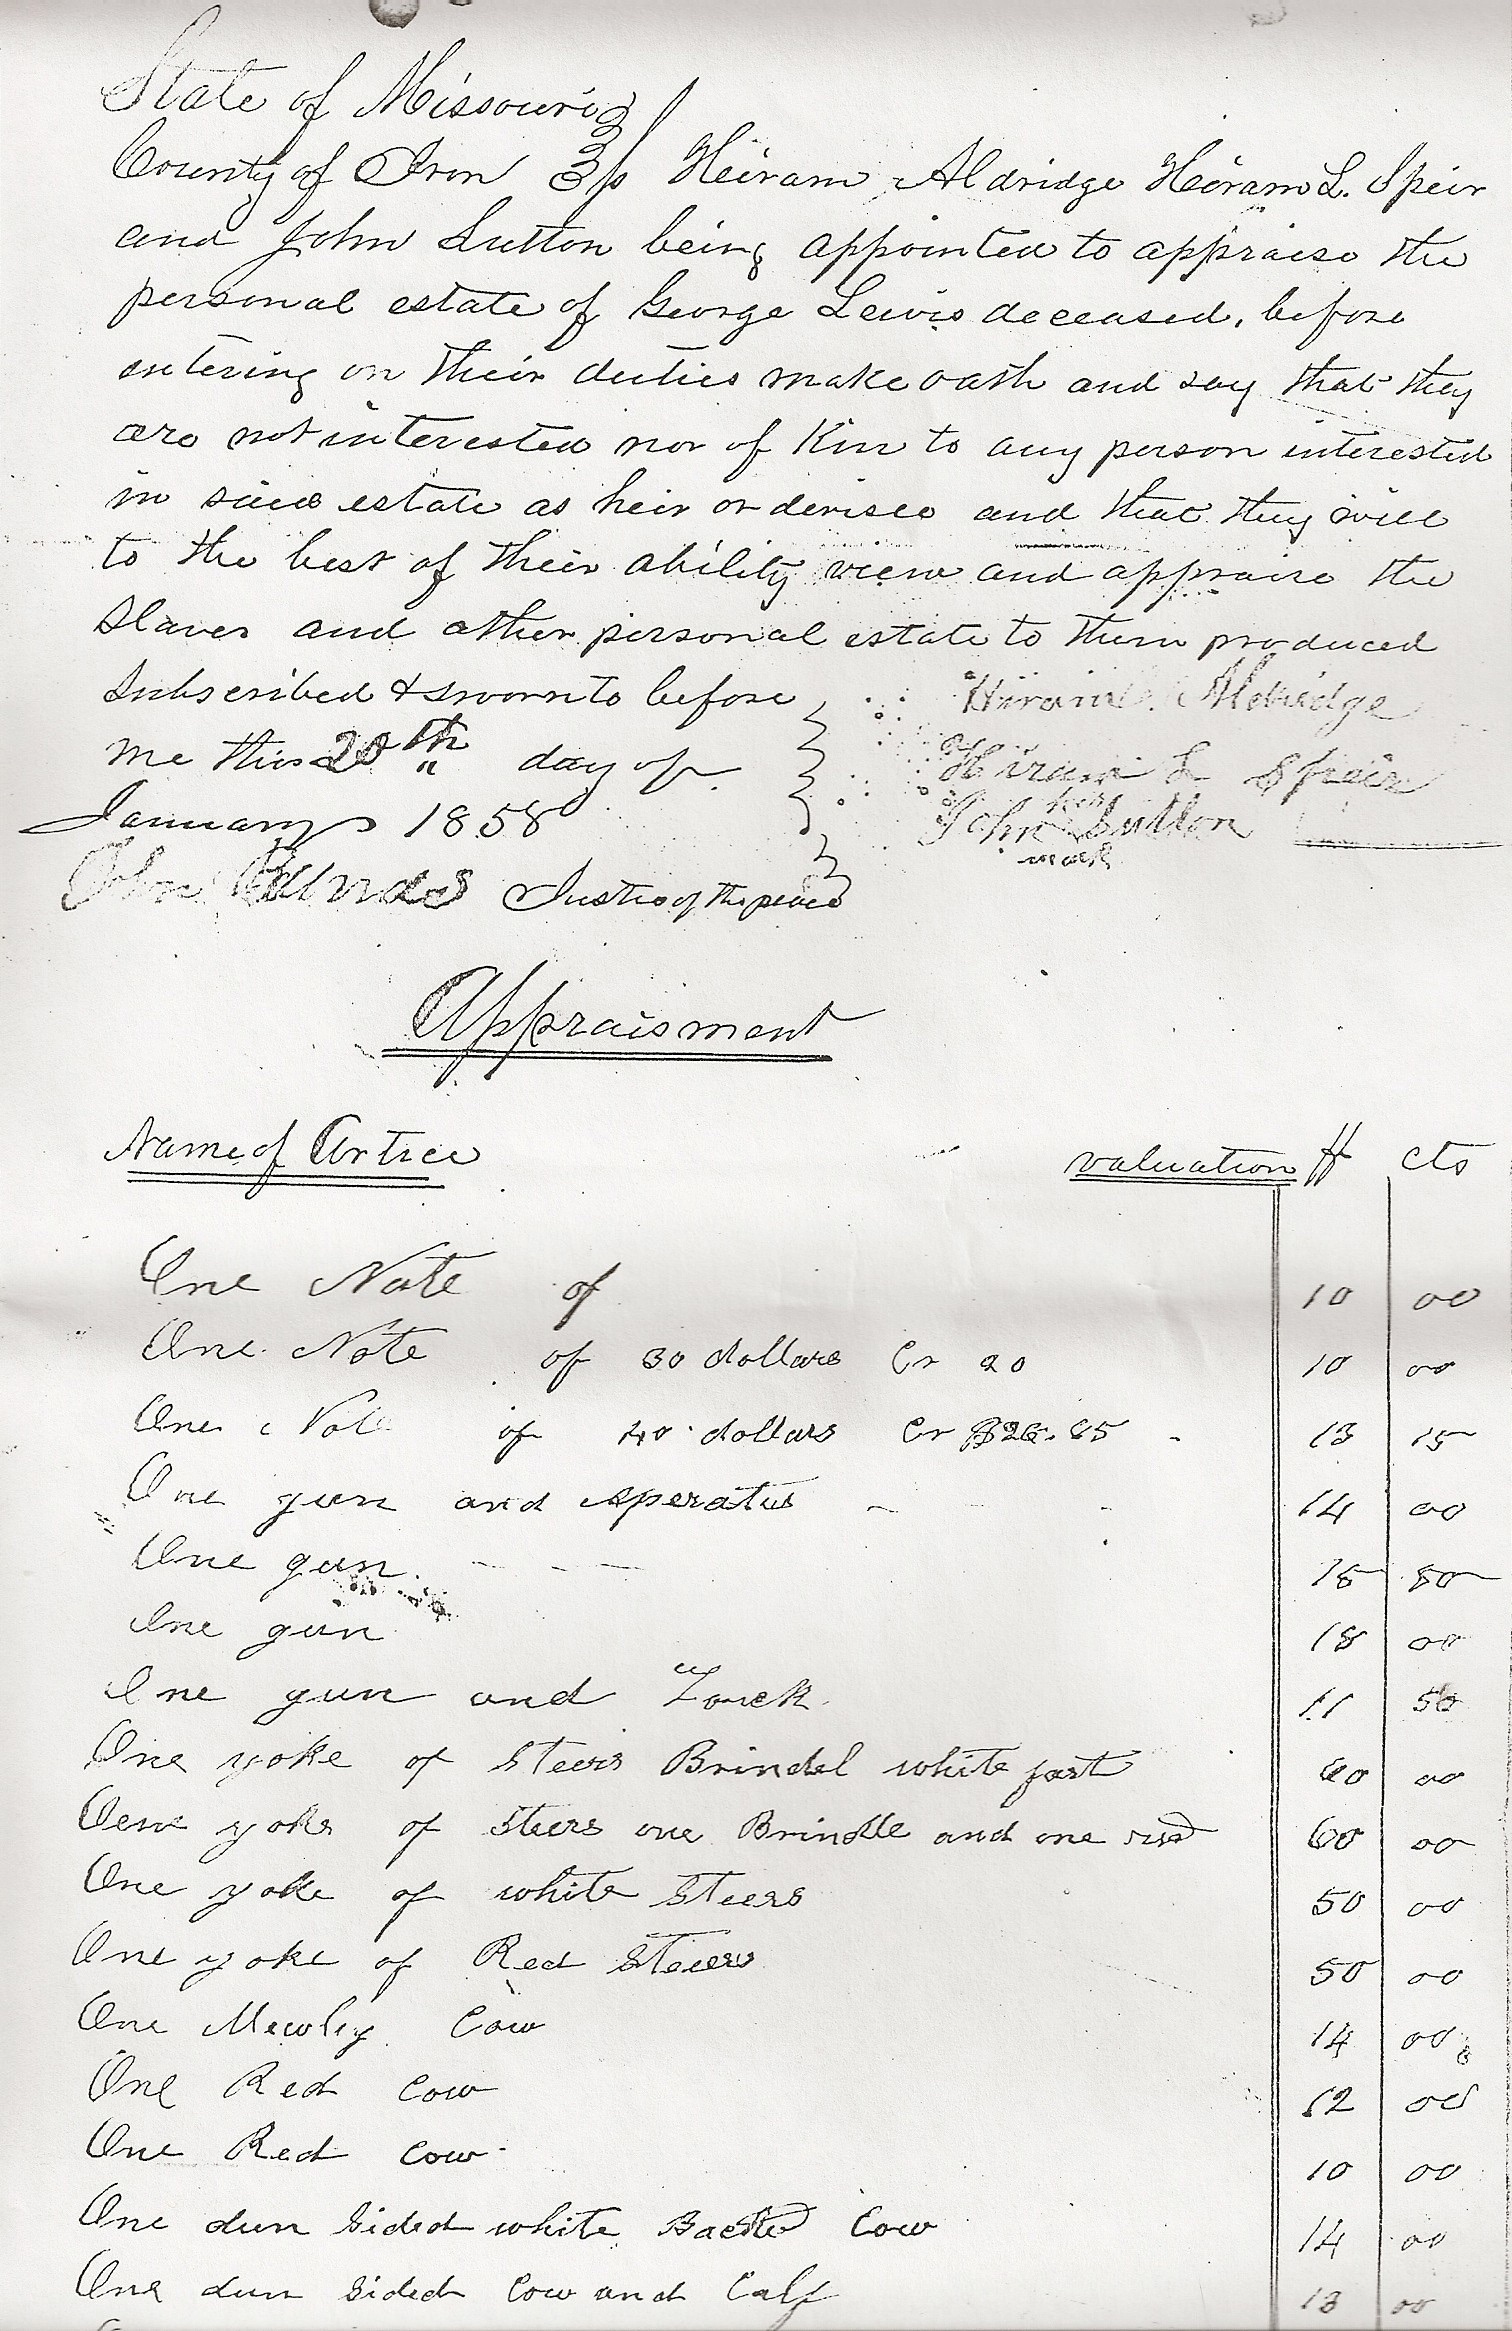 State of Missouri
County of Iron ss Heiram Aldridge Heiram L. Speir
and John Sutton being appointed to appraise the
personal estate of George Lewis deceased, before
entering on their duties make oath and say that they
are not interested nor of Kin to any person interested
in said estate as heir or devisee and that they will
to the best of their ability view and appraise the
Slaves and other personal estate to them produced
Subscribed & sworn to before Hiram Aldridge
me this 20th day of Hiram L Speir
January 1858 John his mark Sutton
John Justice of the peace
Appraisment
Name of Artice valuation $ cts
One Note of 10 00
One Note of 30 dollars Cr 20 10 00
One Note of 40 dollars Cr $26.85 13 15
One gun and Aperatus 14 00
One gun 15 50
One gun 18 00
One gun and 11 50
One yoke of steers Brindel white fast 60 00
One yoke of steers one Brindle and one red 60 00
One yoke of white steers 50 00
One yoke of Red steers 50 00
One Mewley Cow 14 00
One Red Cow 12 00
One Red Cow 10 00
One dun sided white Backed Cow 14 00
One dun sided Cow and Calf 13 00